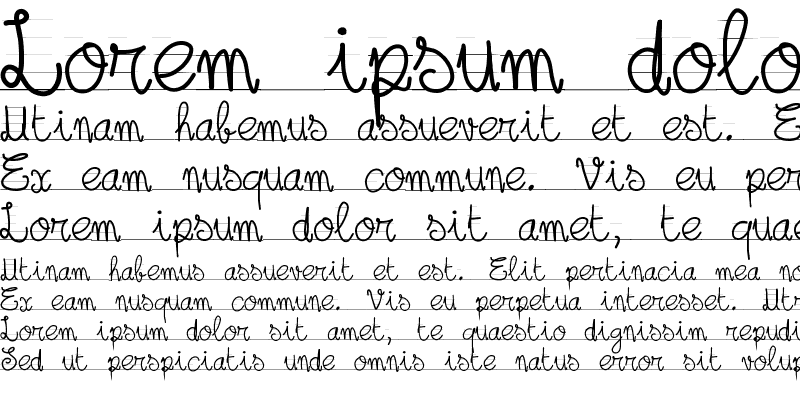 Lorem ipsum dolo
Utinam habemus assueverit et est. E
Ex eam nusquam commune. Vis eu per
Lorem ipsum dolor sit amet, te quae
Utinam habemus assueverit et est. Elit pertinacia mea no
Ex eam nusquam commune. Vis eu perpetua interesset. Utr
Lorem ipsum dolor sit amet, te quaestio dignissim repudi
Sed ut perspiciatis unde omnis iste natus error sit volup